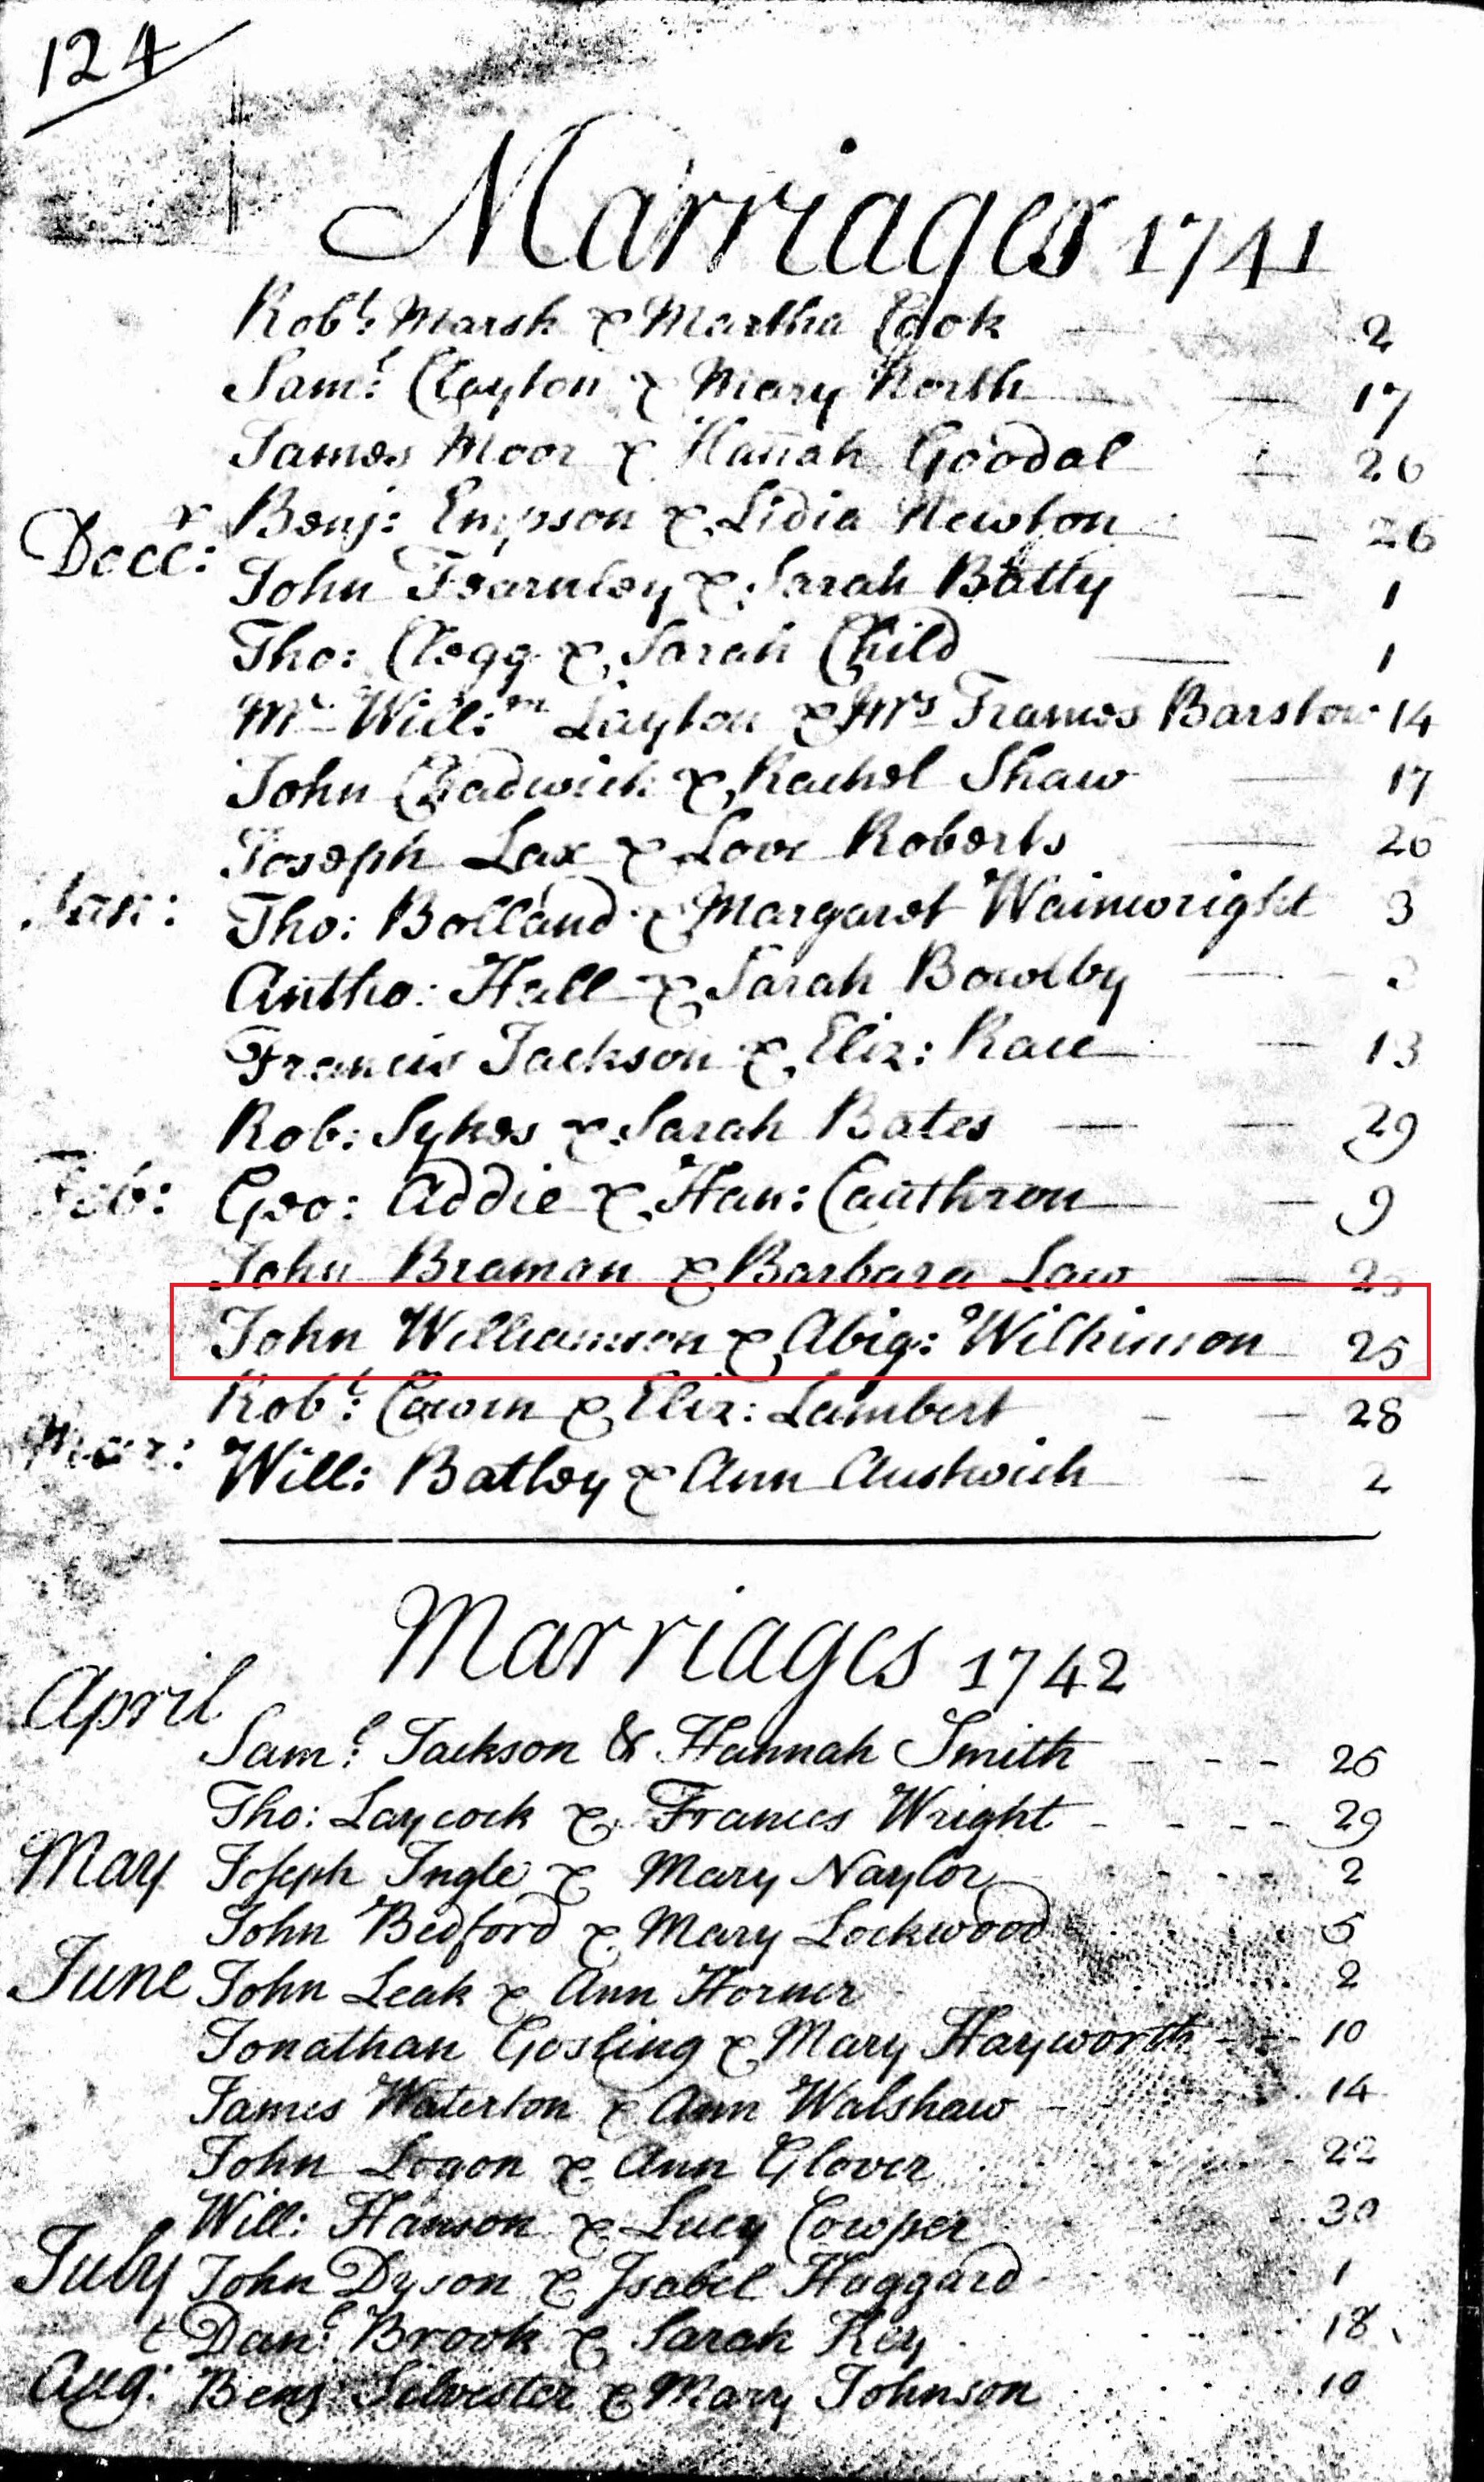 124
Marriages 1741
Robt: Marsh & Martha Cook 2
Saml: Clayton & Mary North 17
James Moor & Hanah Goodal 26
Decc: Benj: Empson & Lidia Newton 26
John Fearnley & Sarah Batty 1
Tho: Clegg & Sarah Child 1
Mr Will:m Layton & Mrs Frances Barstow 14
John Chadwick & Rachel Shaw 17
Joseph Lax & Love Roberts 26
Jan: Tho: Bolland & Margaret Wainwright 3
Antho: Hall & Sarah Bowlby
Francis Jackson & Eliz: Race 13
Rob: Sykes & Sarah Bates 29
Feb: Geo: Addie & Han: Cauthron 9
John Braman & Barbara Law
John Williamson & Abig: Wilkinson 25
Robt: Cawin & Eliz: Lambert 28
Mar: Will: Batley & Ann Austwick 2
Marriages 1742
April
Saml: Jackson & Hannah Smith 26
Tho: Laycock & Frances Wright 29
May Joseph Ingle & Mary Naylor 2
John Bedford & Mary Lockwood 5
June John Leak & Ann Horner 2
Jonathan Gosling & Mary Hayworth 10
James Waterton & Ann Walshaw 14
John Logon & Ann Glover 22
Will: Hanson & Lucy Cowper 30
July John Dyson & Isabel Haggard 1
Danl: Brook & Sarah Key 18
Aug: Benj: Silvester & Mary Johnson 10